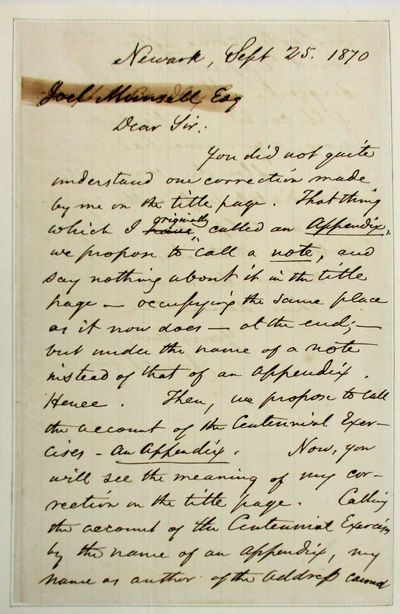 Newark, Sept 25. 1870
Joel Munsell, Esq
Dear Sir:
You did not quite
understand one correction made
by me on the title page. That thing
which I have originally called an Appendix,
we propose to call a note, and
say nothing about it in the title
page — occupying the same place
as it now does — at the end; —
but under the name of a note
instead of that of an appendix.
Hence. Then, we propose to call
the account of the Centennial Exer-
cises - An Appendix. Now, you
will see the meaning of my cor-
rection on the title page. Calling
the account of the Centennial Exercises
by the name of an appendix, my
name as author of the address cannot